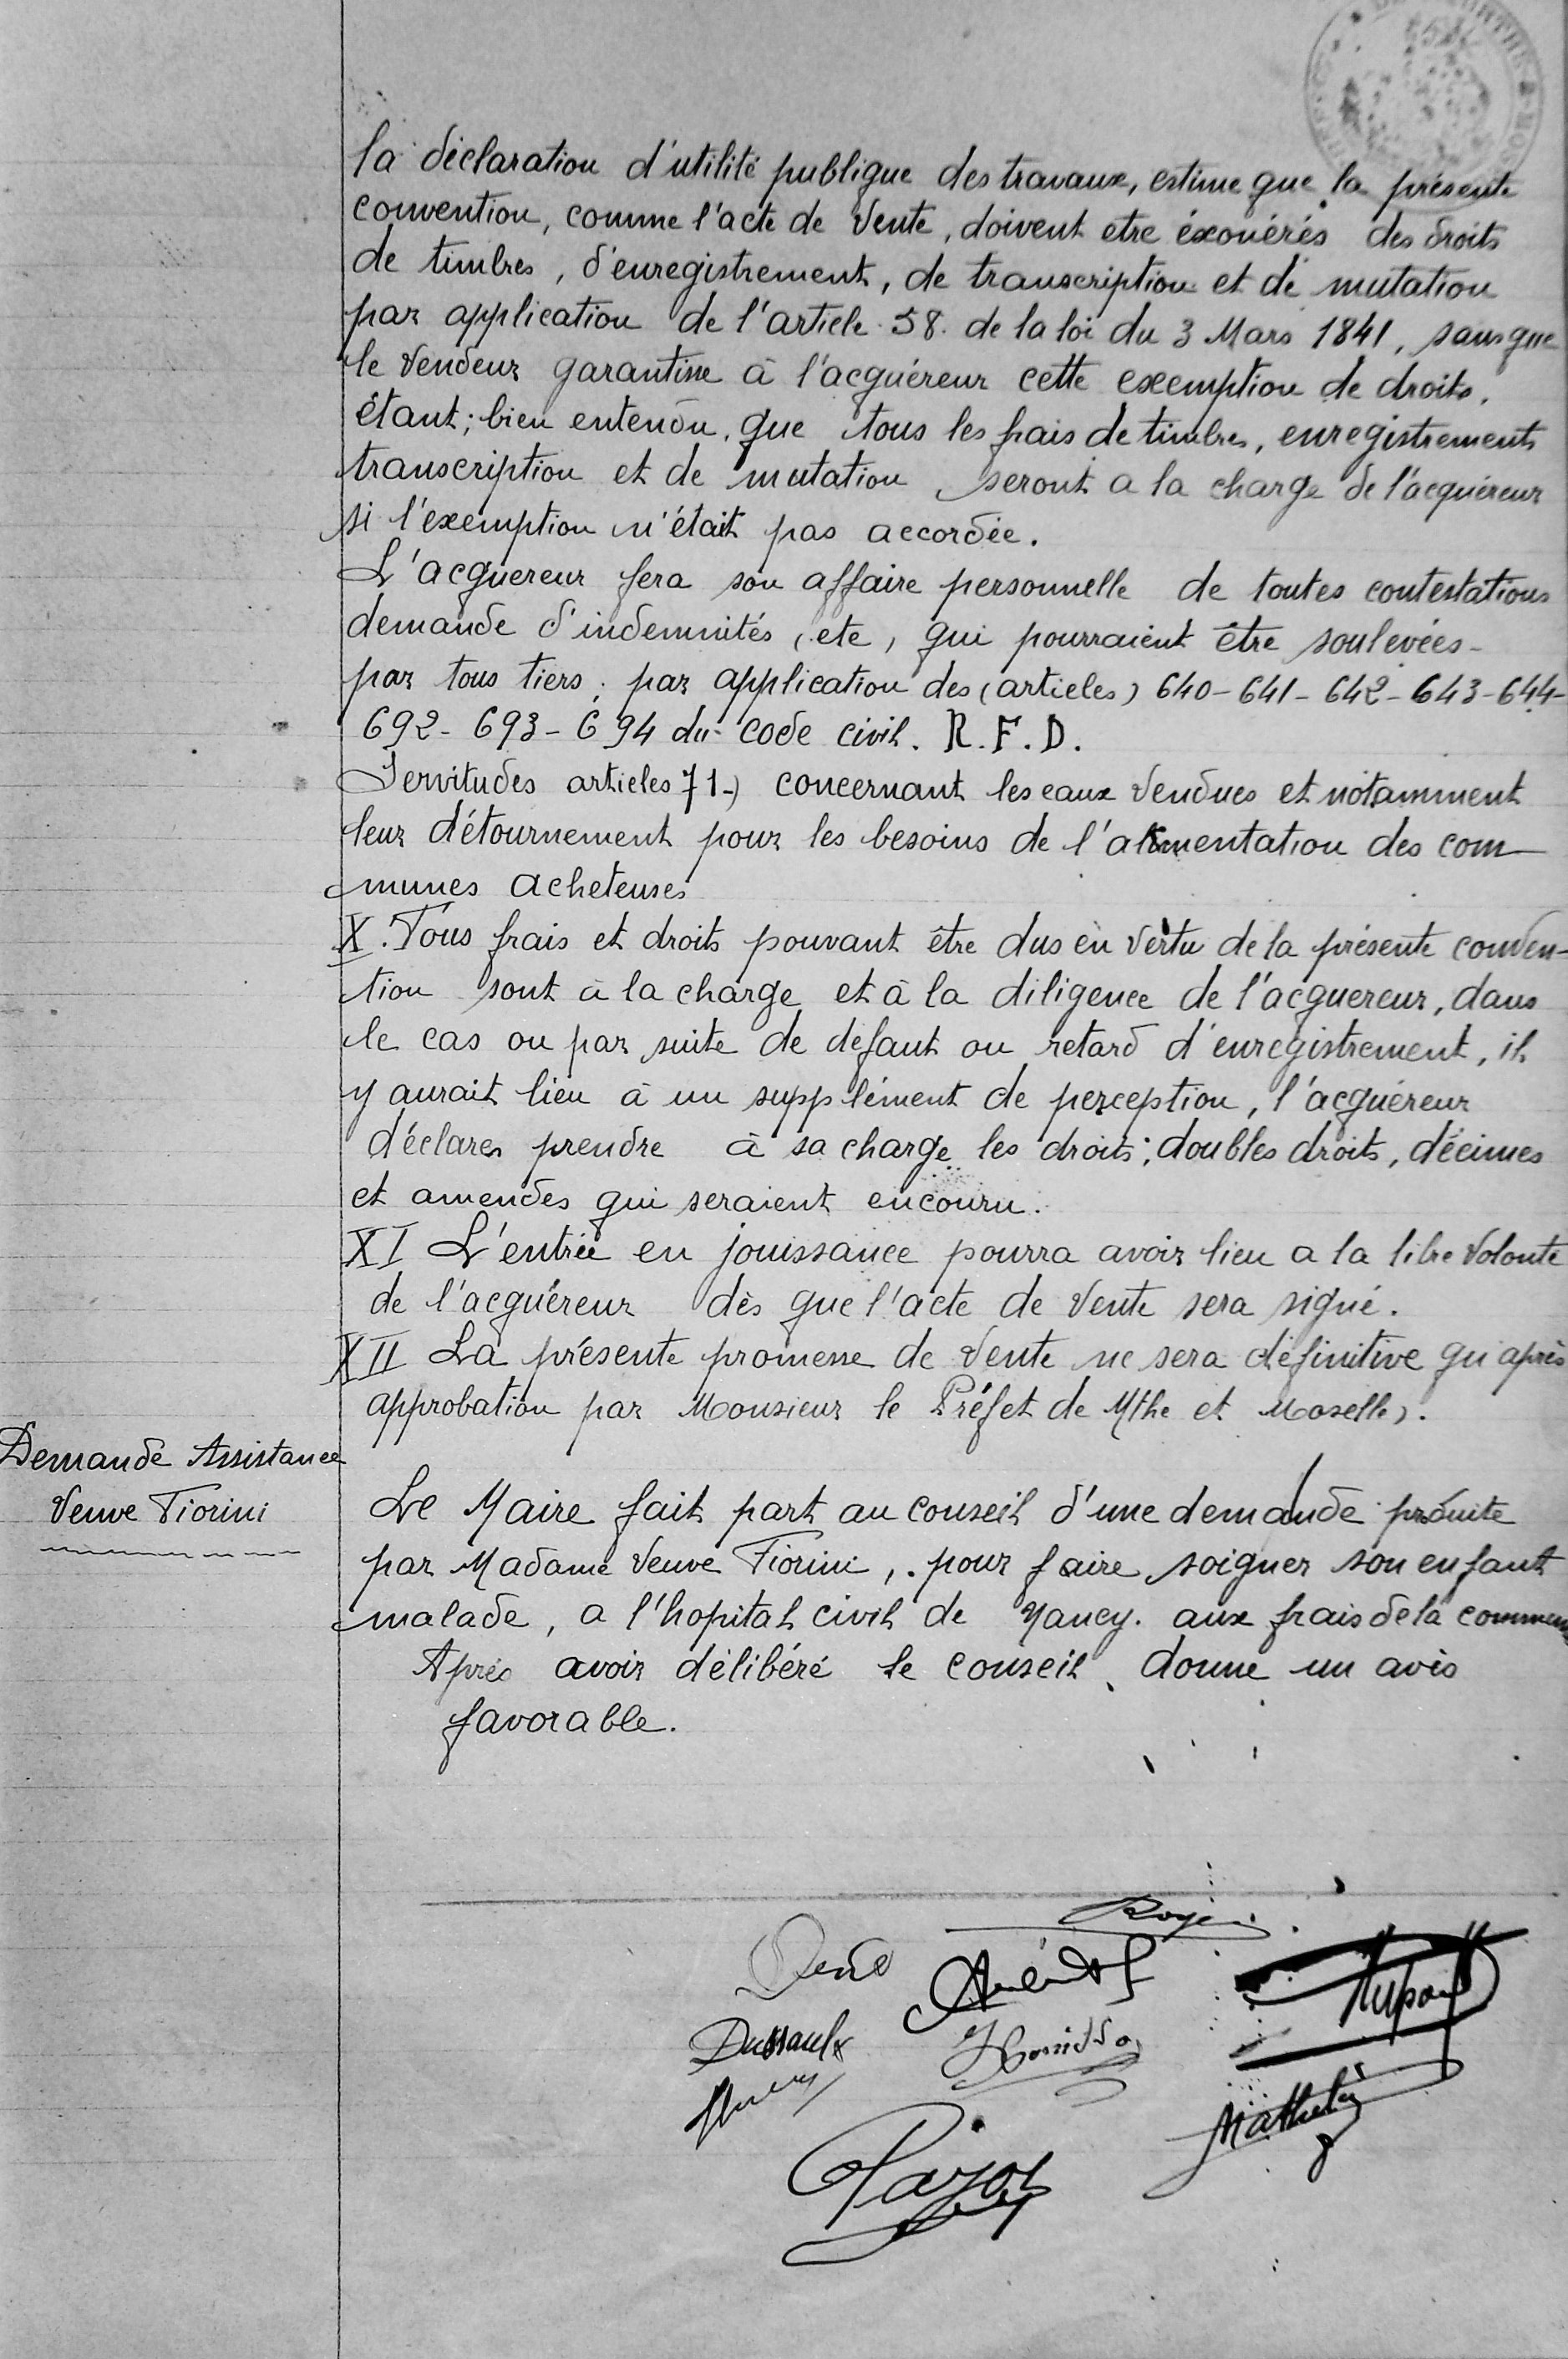 la déclaration d'utilité publique des travaux, estime que la présente
convention, comme l'acte de vente, doivent etre éxonérés des droits
de timbres, d'enregistrement, de transcription et de mutation
par application de l'article 58. de la loi du 3 Mars 1841, sans que
le vendeur garantisse à l'acquéreur cette exemption de droits,
étant; bien entendu, que tous les frais de timbres, enregistrements
transcription et de mutation seront a la charge de l'acquéreur
si l'exemption n'était pas accordée.
L'acquereur fera son affaire personnelle de toutes contestations
demande d'indemnités, etc, qui pourraient être soulevées
par tous tiers; par application des (articles) 640-641-642-643-644-
692-693-694 du code civil. R.F.D.
Servitudes articles 71-) concernant les eaux vendues et notamment
leur détournement pour les besoins de l'alimentation des com-
munes acheteuses
X. Tous frais et droits pouvant être dus en vertu de la présente conven-
tion sont à la charge et à la diligence de l'acquereur, dans
le cas ou par suite de defaut ou retard d'enregistrement, il
y aurait lieu à un supplément de perception, l'acquéreur
déclare prendre à sa charge les droits; doubles droits, décimes
et amendes qui seraient encouru.
XI L'entrée en jouissance pourra avoir lieu a la libre volonté
de l'acquéreur dès que l'acte de vente sera signé.
XII La présente promesse de vente ne sera définitive qu'après
approbation par Monsieur le Préfet de Mthe et Moselle).
Demande Assistance
Veuve Fiorini
Le Maire fait part au conseil d'une demande produite
par Madame Veuve Fiorini, pour faire soigner son enfant
malade, a l'hopital civil de Nancy. aux frais de la commune
Après avoir délibéré le conseil, donne un avis
favorable.
Dussaulx
Mathulin
Pajot